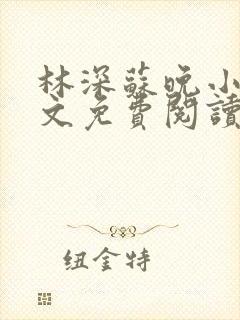 林深蘇晚小
文免費閱讀
纽金特